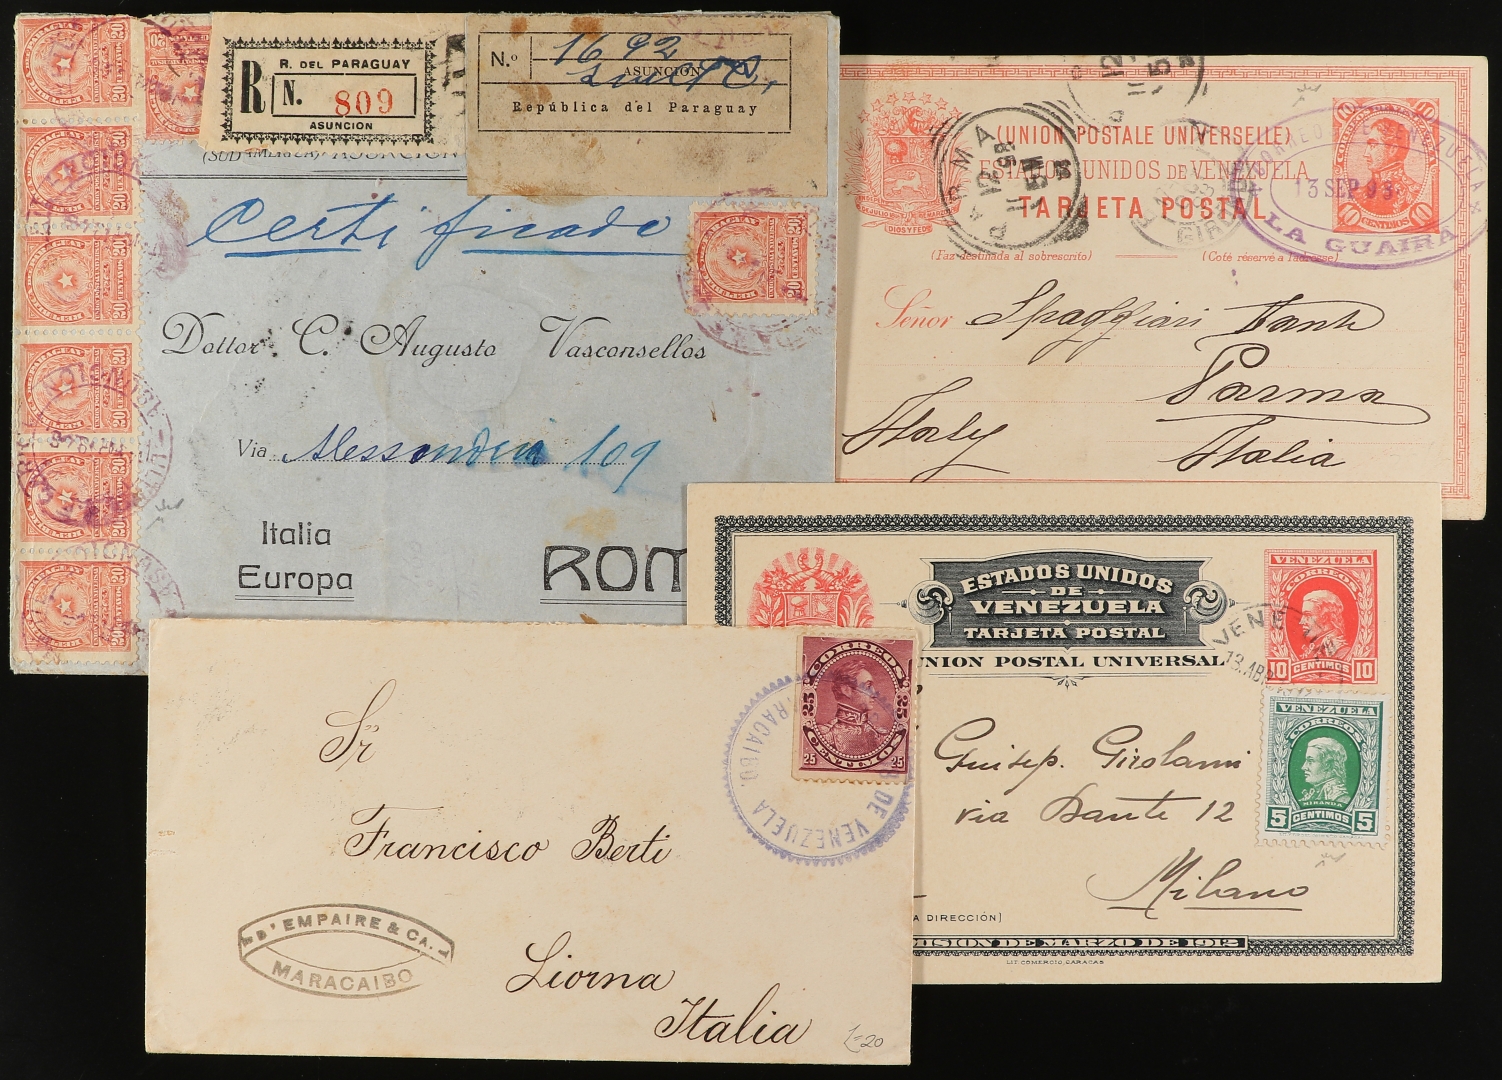 R
R. DEL PARAGUAY
N. 809
ASUNCION
N.o 1692
ASUNCIÓN
República del Paraguay
Certificado
Dottor C. Augusto Vasconsellos
Via Alessandria 109
Italia
Europa
ROM
(UNION POSTALE UNIVERSELLE)
ESTADOS UNIDOS DE VENEZUELA
TARJETA POSTAL
(Faz destinada al sobrescrito)
(Coté réservé a l'adresse)
DIOS Y FED
10
10
10 CENTIMOS 10
CORREO DE VENEZUELA
13 SEP 93
LA GUAIRA
PARMA
Señor Spaggiari Dante
Parma
Italy
Italia
ESTADOS UNIDOS
DE
VENEZUELA
TARJETA POSTAL
UNION POSTAL UNIVERSAL
VENEZUELA
CORREOS
10 CENTIMOS 10
13.ABR
VENEZUELA
CORREOS
MIRANDA
5 CENTIMOS 5
Guisep. Girolami
via Dante 12
Milano
A DIRECCIÓN)
MISION DE MARZO DE 1912
LIT. COMERCIO, CARACAS
CORREOS
25 25
CENTIMOS
25 25
MARACAIBO.
DE VENEZUELA
Sr
Francisco Berti
Liorna
Italia
D'EMPAIRE & CA.
MARACAIBO
L=20